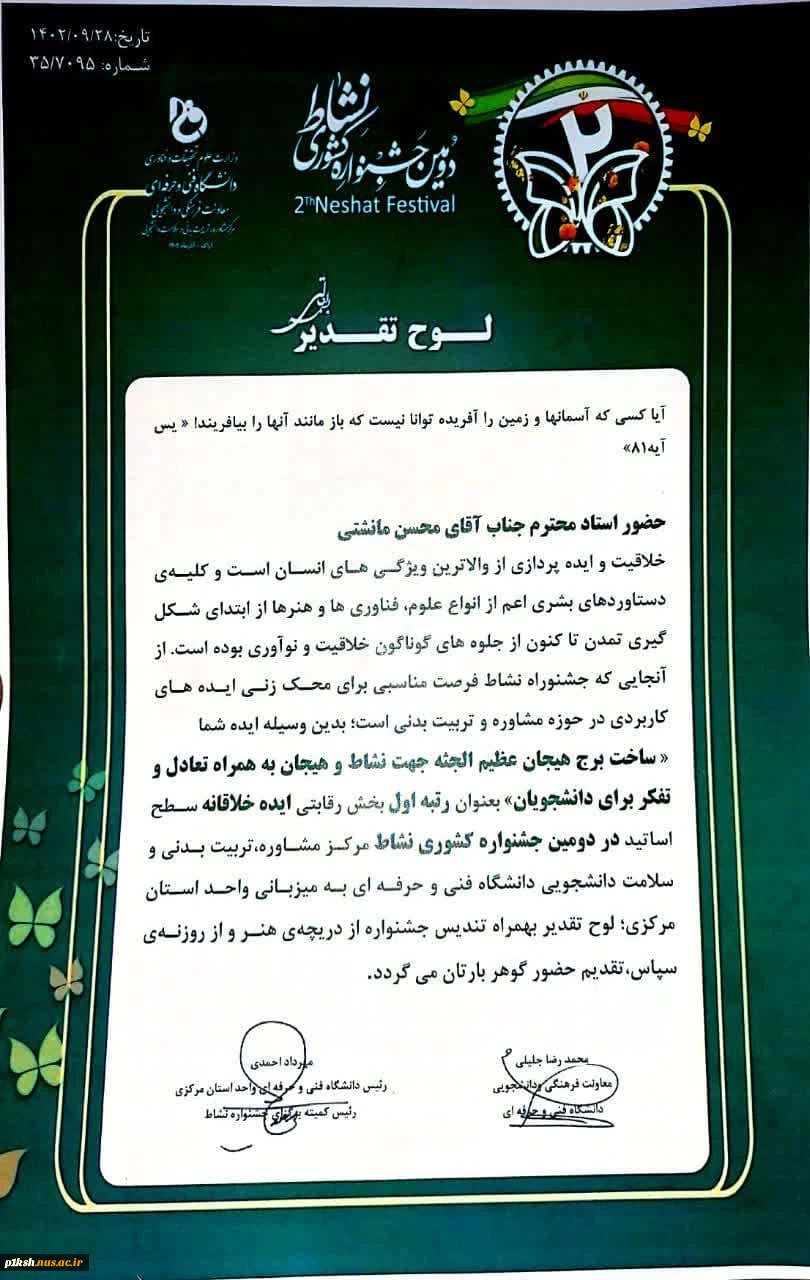 تاریخ:۱۴۰۲/۰۹/۲۸
شماره: ۳۵/۷۰۹۵
وزارت علوم تحقیقات و فناوری
دانشگاه فنی و حرفه‌ای
معاونت فرهنگی و دانشجویی
دومین جشنواره کشوری نشاط
2ᵀʰNeshat Festival
۲
باسمه تعالی
لوح تقدیر
آیا کسی که آسمانها و زمین را آفریده توانا نیست که باز مانند آنها را بیافریند! « یس
آیه۸۱»
حضور استاد محترم جناب آقای محسن مانشتی
خلاقیت و ایده پردازی از والاترین ویژگی های انسان است و کلیه‌ی
دستاوردهای بشری اعم از انواع علوم، فناوری ها و هنرها از ابتدای شکل
گیری تمدن تا کنون از جلوه های گوناگون خلاقیت و نوآوری بوده است. از
آنجایی که جشنوراه نشاط فرصت مناسبی برای محک زنی ایده های
کاربردی در حوزه مشاوره و تربیت بدنی است؛ بدین وسیله ایده شما
« ساخت برج هیجان عظیم الجثه جهت نشاط و هیجان به همراه تعادل و
تفکر برای دانشجویان» بعنوان رتبه اول بخش رقابتی ایده خلاقانه سطح
اساتید در دومین جشنواره کشوری نشاط مرکز مشاوره،تربیت بدنی و
سلامت دانشجویی دانشگاه فنی و حرفه ای به میزبانی واحد استان
مرکزی؛ لوح تقدیر بهمراه تندیس جشنواره از دریچه‌ی هنر و از روزنه‌ی
سپاس،تقدیم حضور گوهر بارتان می گردد.
محمد رضا جلیلی
معاونت فرهنگی ودانشجویی
دانشگاه فنی و حرفه ای
مهرداد احمدی
رئیس دانشگاه فنی و حرفه ای واحد استان مرکزی
رئیس کمیته برگزای جشنواره نشاط
p1ksh.nus.ac.ir